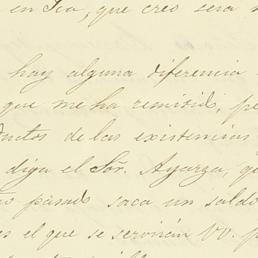 en Ica, que creo será
hay alguna diferencia
que me ha remitido, pe
ductos de las existencias
diga el Sor. Ayarza, qu
pasado saca un saldo
es el que se servirán VV. p